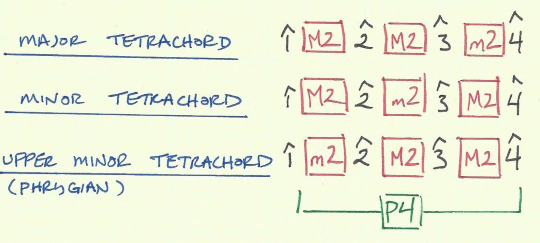 MAJOR TETRACHORD 1̂ M2 2̂ M2 3̂ m2 4̂
MINOR TETRACHORD 1̂ M2 2̂ m2 3̂ M2 4̂
UPPER MINOR TETRACHORD 1̂ m2 2̂ M2 3̂ M2 4̂
(PHRYGIAN) P4